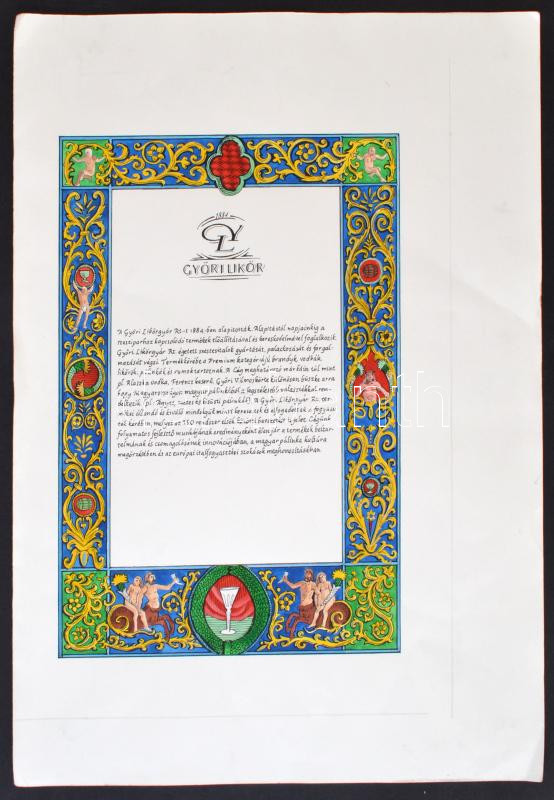 1884
GYL
GYŐRI LIKŐR
A Győri Likőrgyár Rt-t 1884-ben alapították. Alapítástól napjainkig a
szesziparhoz kapcsolódó termékek előállításával és kereskedelmével foglalkozik
Győri Likőrgyár Rt. égetett szeszesitalok gyártását, palackozását és forgal-
mazását végzi. Termékkörébe a Premium kategóriájú brandyk, vodkák,
likőrök, pálinkák és rumok tartoznak. A Cég meghatározó márkáin túl mint
pl. Alaszka vodka, Ferenc keserű, Győri Vilmoskörte különösen büszke arra
hogy Magyarországon magyar pálinkákból a legszélesebb választékkal ren-
delkezik (pl. Ágyas, füstös és bibóti pálinkák). A Győri Likőrgyár Rt. ter-
mékei állandó és kiváló minőségük miatt keresettek és elfogadottak a fogyasz-
tók körében, melyet az ISO rendszer elsők közötti bevezetése is jelez. Cégünk
folyamatos fejlesztő munkájának eredményeként élen jár a termékek beltar-
talmának és csomagolásának innovációjában, a magyar pálinka kultúra
megőrzésében és az európai italfogyasztási szokások meghonosításában.